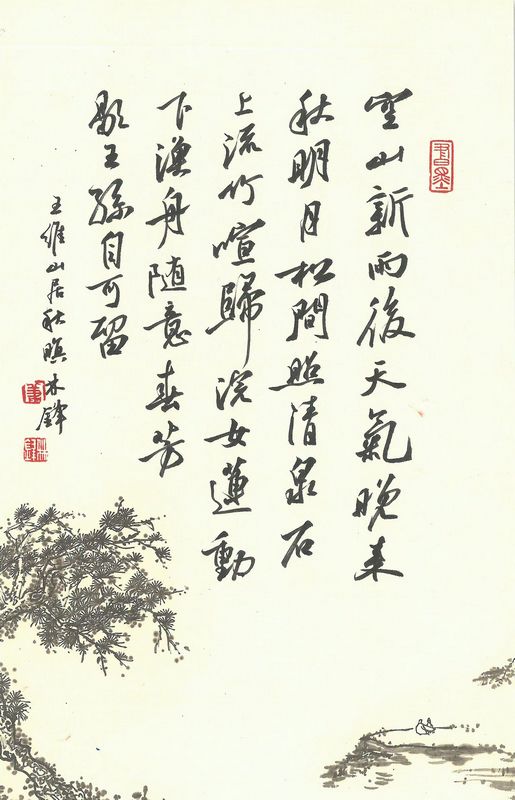 空山新雨後天氣晚来
秋明月松間照清泉石
上流竹喧歸浣女蓮動
下漁舟随意春芳
歇王孫自可留
王維山居秋暝木鋒